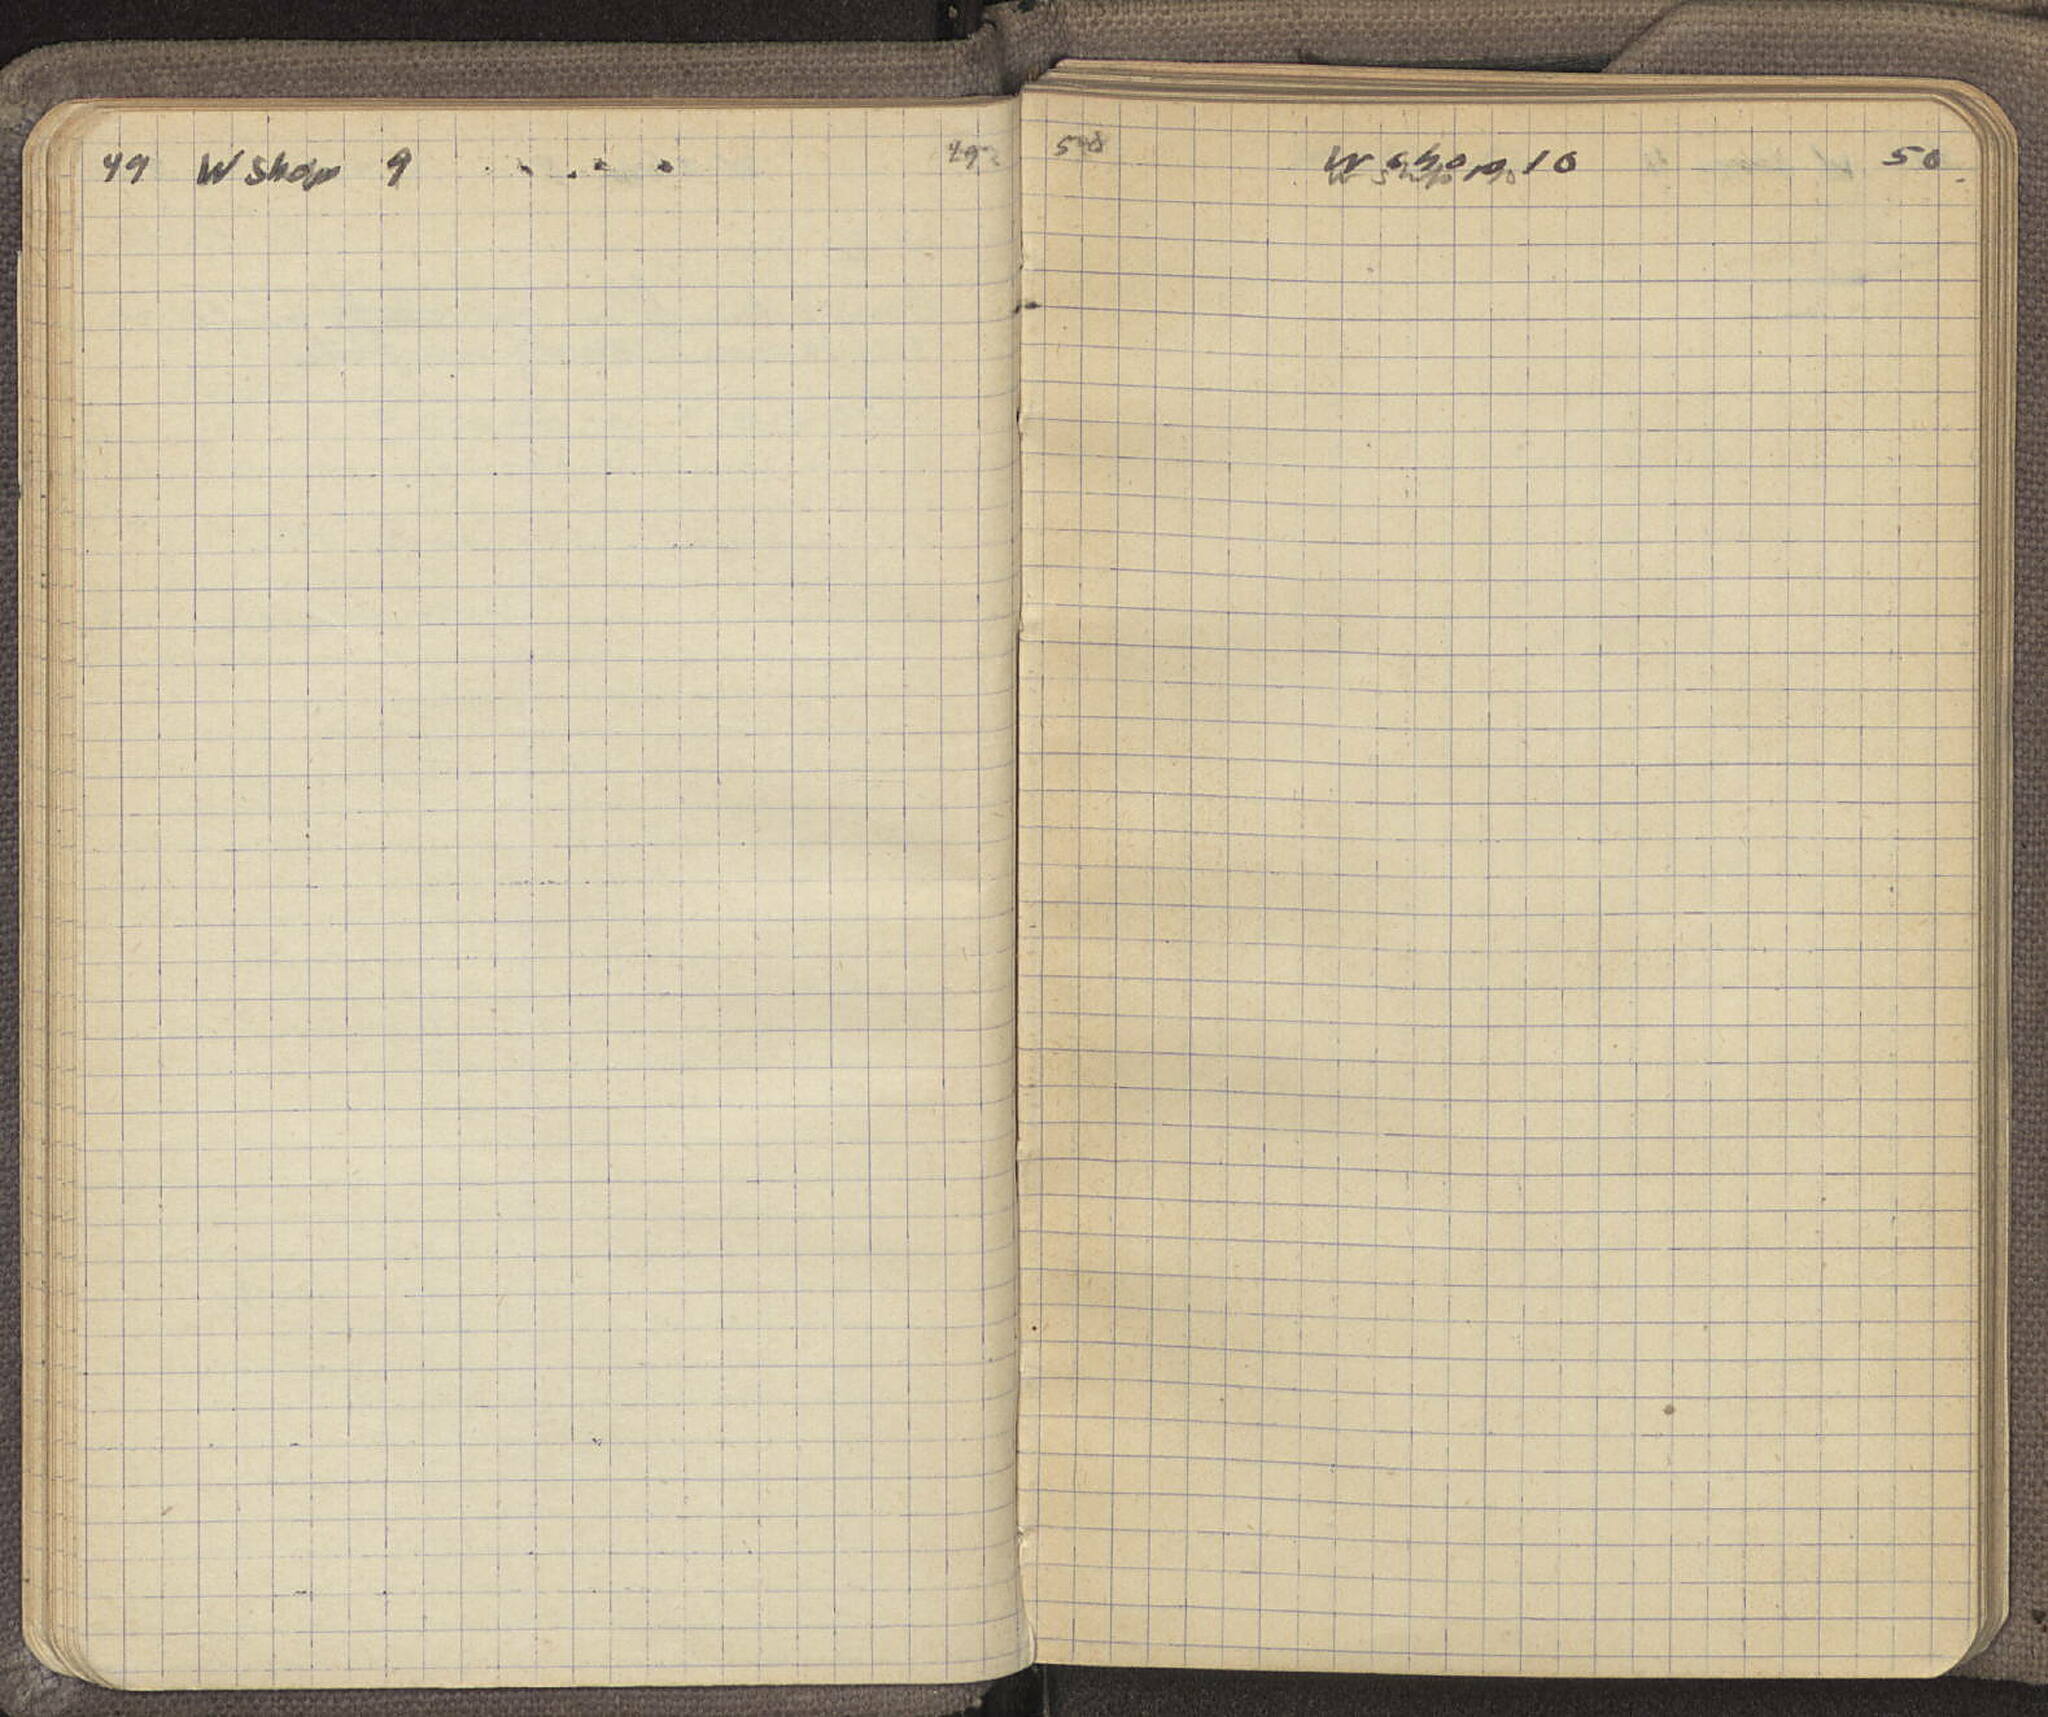 49 W Shop 9 49
50 W Shop 10 50